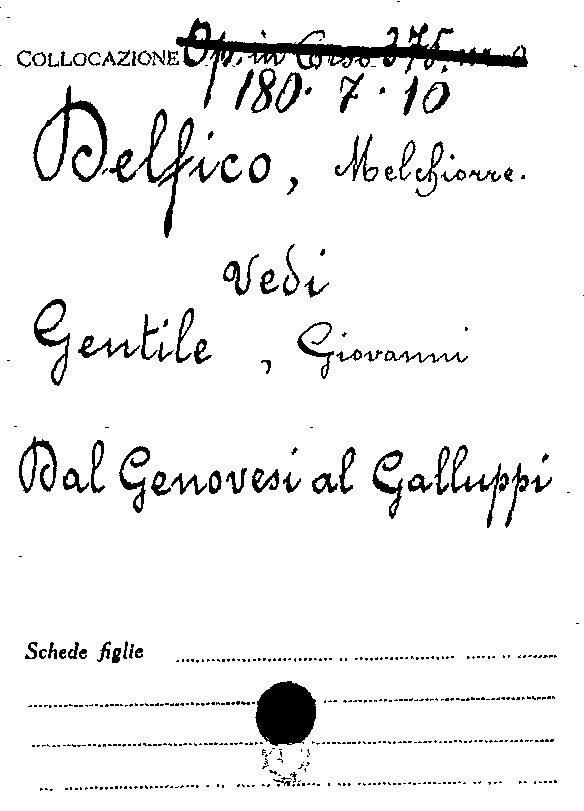 COLLOCAZIONE Op. in Corso 375.
180. 7. 10
Delfico, Melchiorre.
Vedi
Gentile, Giovanni
Dal Genovesi al Galluppi
Schede figlie